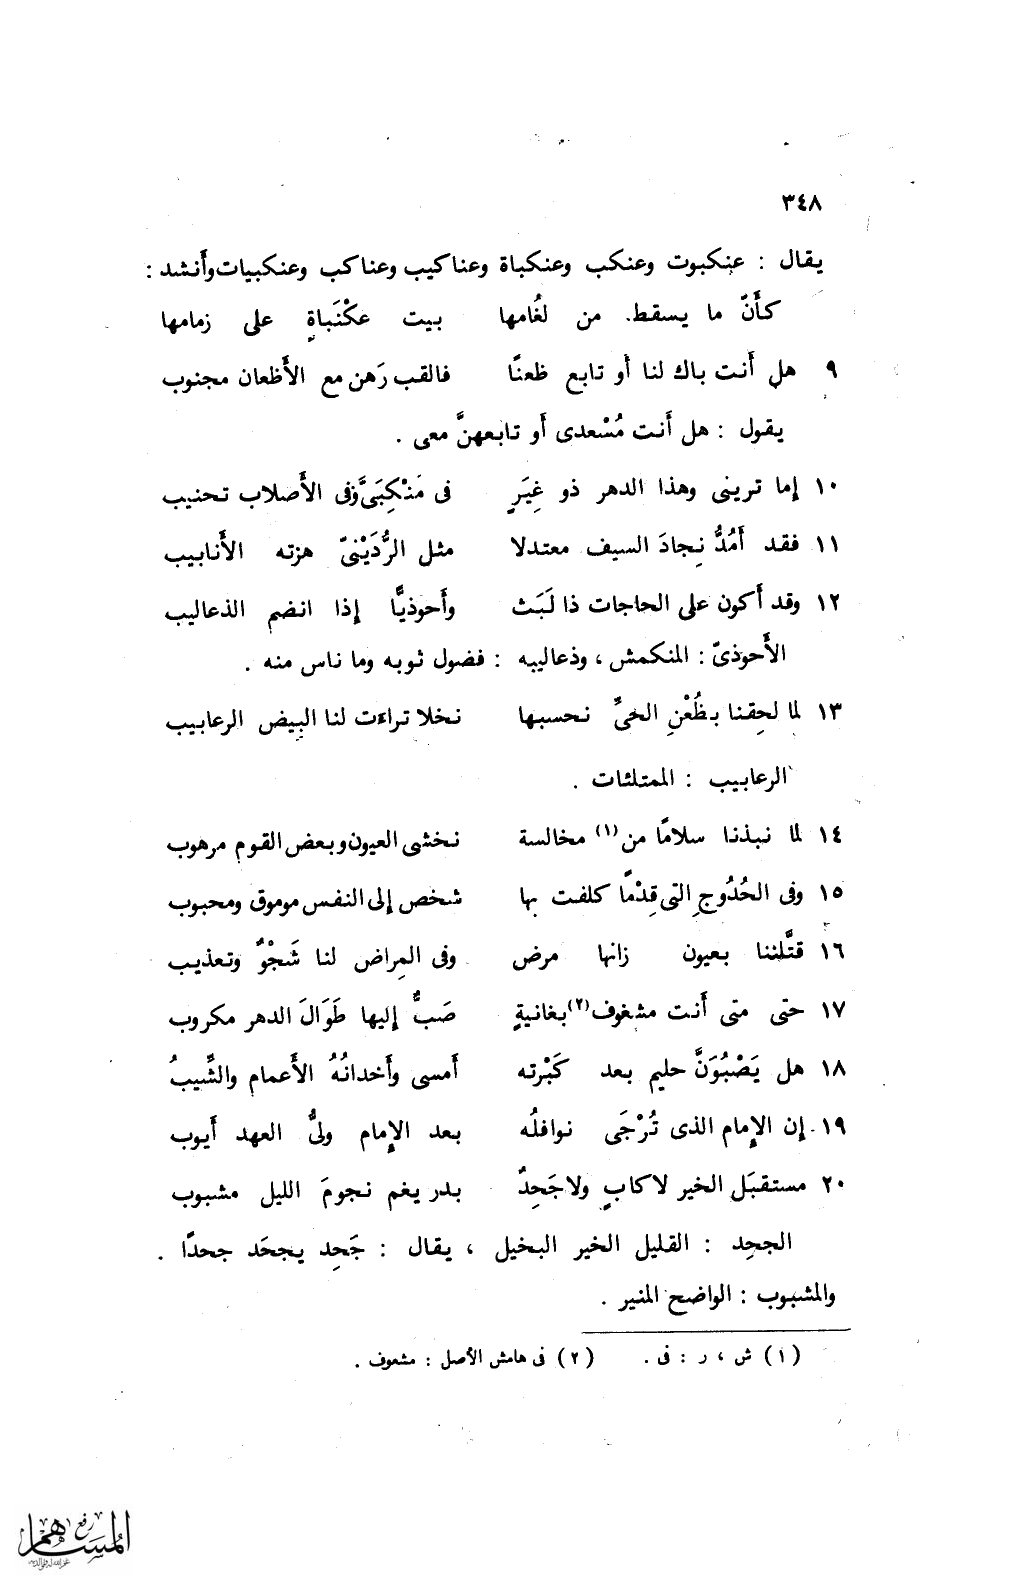 ٣٤٨
يقال : عنكبوت وعنكب وعنكباة وعناكيب وعناكب وعنكبيات وأنشد :
كأَنّ ما يسقط من لُغامها بيت عكْنَباةٍ على زمامها
٩ هل أَنت باك لنا أَو تابع ظعنًا فالقب رَهن مع الأَظعان مجنوب
يقول : هل أَنت مُسْعدى أَو تابعهنَّ معى .
١٠ إما ترينى وهذا الدهر ذو غِيَرٍ فى مَنْكِبَىَّ وَفى الأَصلاب تحنيب
١١ فقد أَمُدُّ نِجادَ السيف معتدلا مثل الرُّدَيْنىّ هزته الأَنابيب
١٢ وقد أَكون على الحاجات ذا لَبَث وأَحوذيًّا إذا انضم الذعاليب
الأَحوذىّ : المنكمش ، وذعاليبه : فضول ثوبه وما ناس منه .
١٣ لما لحِقنا بظُعْنِ الحىِّ نحسبها نخلا تراءت لنا البِيض الرعابيب
الرعابيب : الممتلئات .
١٤ لما نبذنا سلامًا من(١) مخالسة نخشى العيون وبعض القوم مرهوب
١٥ وفى الحُدُوجِ التى قِدْمًا كلفت بها شخص إلى النفس موموق ومحبوب
١٦ قتَّلننا بعيون زانها مرض وفى المِراض لنا شَجْوٌ وتعذيب
١٧ حتى متى أَنت مشغوف(٢) بغانيةٍ صَبٌّ إليها طَوَالَ الدهر مكروب
١٨ هل يَصْبُوَنَّ حليم بعد كَبْرته أَمسى وأَخدانُهُ الأَعمام والشِّيبُ
١٩ إن الإمام الذى تُرْجَى نوافلُه بعد الإِمام ولىُّ العهد أَيوب
٢٠ مستقبَل الخير لا كابٍ ولا جَحِدٌ بدر يغم نجومَ الليل مشبوب
الجحِد : القليل الخير البخيل ، يقال : جَحِد يجحَد جحدًا .
والمشبوب : الواضح المنير .
(١) ش ، ر : فى . (٢) فى هامش الأصل : مشعوف .